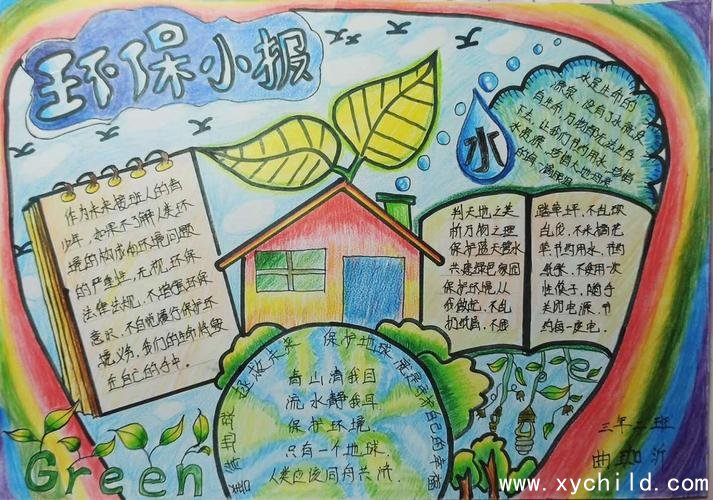 环保小报
作为未来接班人的青
少年，如果不了解人类环
境的构成和环境问题
的严重性，无视环保
法律法规，不增强环保
意识，不自觉履行保护环
境义务，我们的生命将毁
在自己的手中。
水
水是生命的
源泉，没有了水就没
有生命，万物都无法生存
下去，让我们节约用水
判天地之美
析万物之理
保护蓝天碧水
共建绿色家园
保护环境从
我做起，不乱
扔纸屑，不随
踏草坪，不乱砍
乱伐，不采摘花
草节约用水，节约
纸张，不使用一次
性筷子，随手
关闭电源，节
约每一度电。
善待地球 拯救未来 保护地球 就是守护自己的幸福
青山清我目
流水静我耳
保护环境，
只有一个地球，
人类应该同舟共济.
Green
三年二班
曲珈沂
www.xychild.com